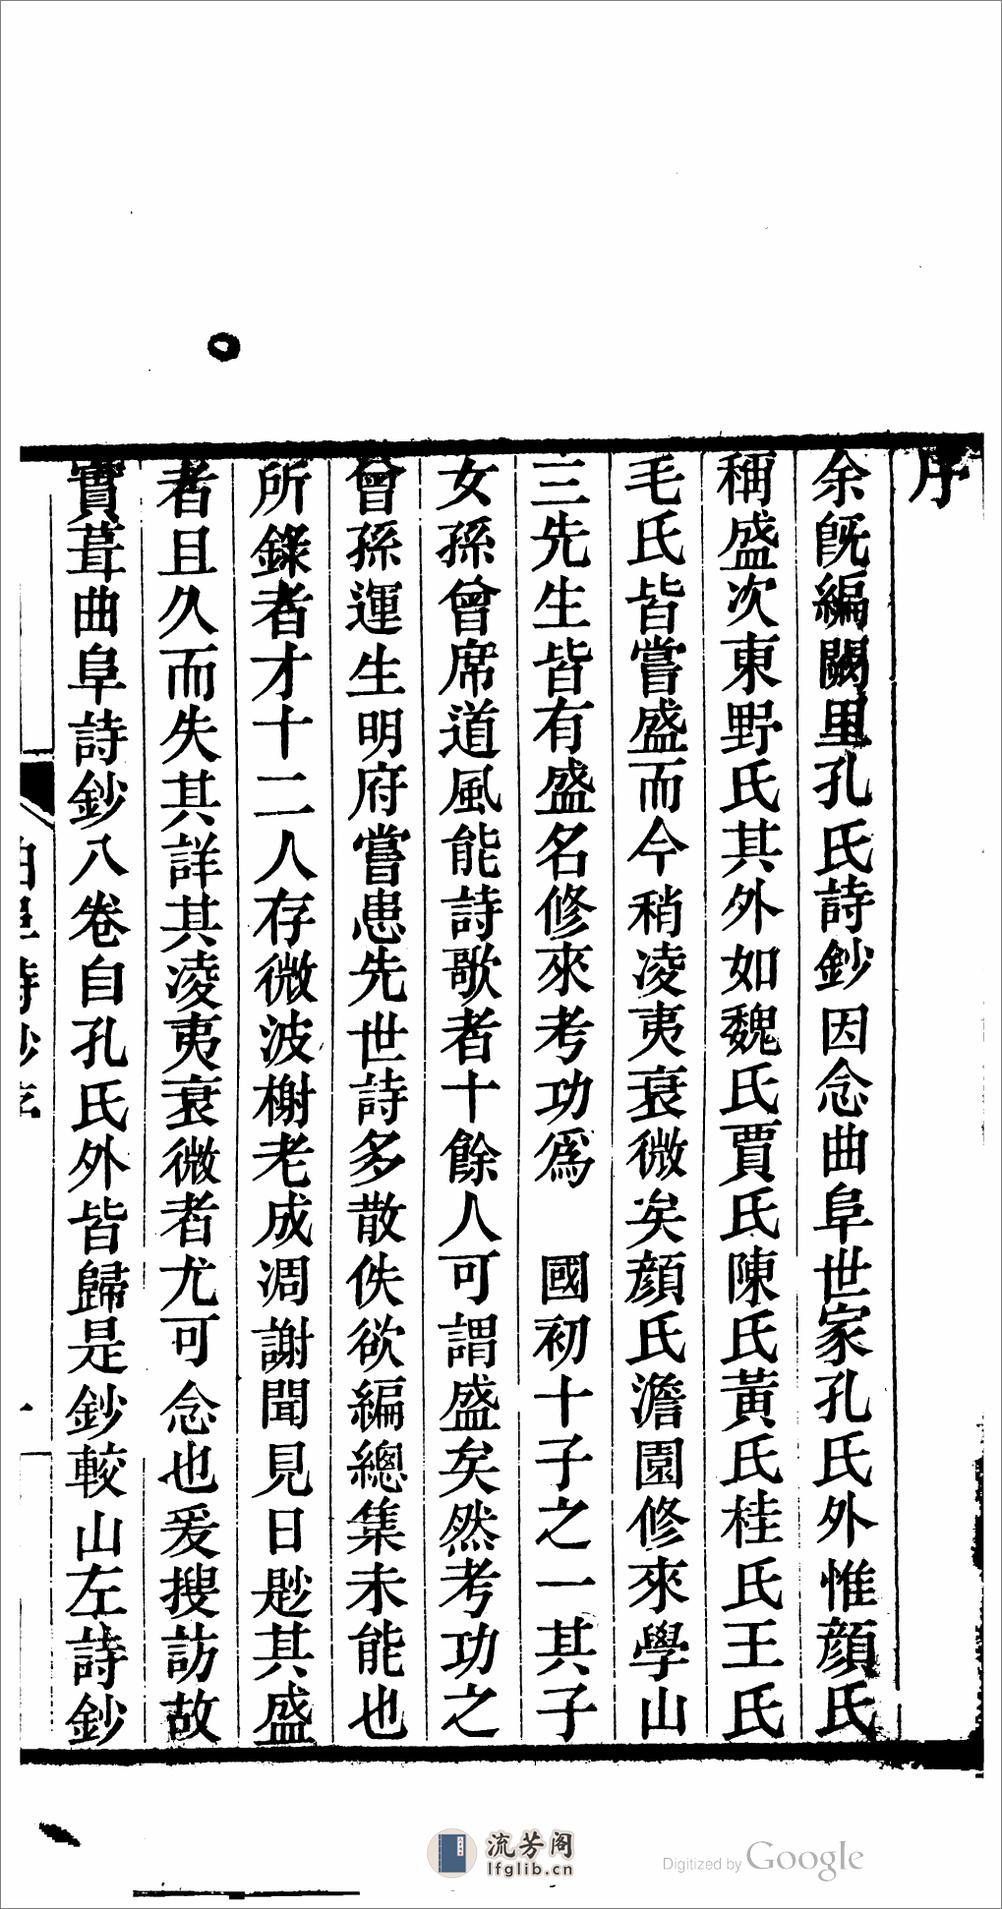 序
余旣編闕里孔氏詩鈔因念曲阜世家孔氏外惟顏氏
稱盛次東野氏其外如魏氏賈氏陳氏黃氏桂氏王氏
毛氏皆嘗盛而今稍凌夷衰微矣顏氏澹園修來學山
三先生皆有盛名修來考功爲 國初十子之一其子
女孫曾席道風能詩歌者十餘人可謂盛矣然考功之
曾孫運生明府嘗患先世詩多散佚欲編總集未能也
所錄者才十二人存微波榭老成凋謝聞見日尟其盛
者且久而失其詳其凌夷衰微者尤可念也爰搜訪故
實葺曲阜詩鈔八卷自孔氏外皆歸是鈔較山左詩鈔
曲阜詩鈔序
一
流芳阁
lfglib.cn
Digitized by Google